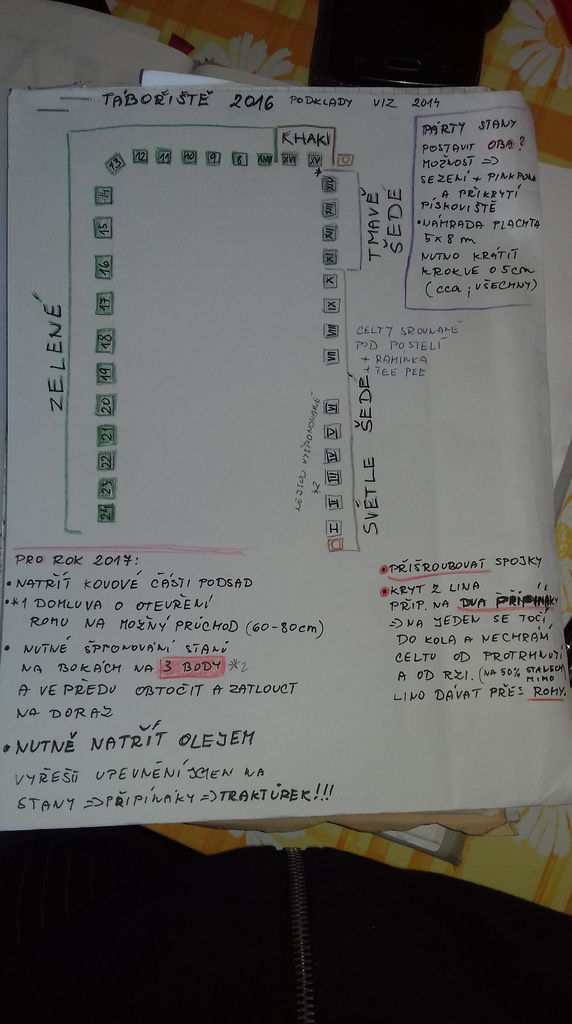 TÁBOŘIŠTĚ 2016 PODKLADY VIZ 2014
KHAKI
13 12 11 10 9 8 XVII XVI XV
*
14
15
16
17
18
19
20
21
22
23
24
ZELENÉ
XIV
XIII
XII
XI
X
IX
VIII
VII
VI
V
IV
III
II
I
TMAVĚ
ŠEDÉ
SVĚTLE ŠEDÉ
*2
CELTY SROVNANÉ
POD POSTELÍ
+ RAMÍNKA
+ TEE PEE
PÁRTY STANY
POSTAVIT OBA?
MOŽNOST =>
SEZENÍ + PINKPONK
A PŘIKRYTÍ
PÍSKOVIŠTĚ
• NÁHRADA PLACHTA
5 x 8 m
NUTNO KRÁTIT
KROKVE O 5cm
(CCA; VŠECHNY)
PRO ROK 2017:
• NATŘÍT KOVOVÉ ČÁSTI PODSAD
• *1 DOMLUVA O OTEVŘENÍ
ROHU NA MOŽNÝ PRŮCHOD (60-80cm)
• NUTNÉ ŠPONOVÁNÍ STANŮ
NA BOKÁCH NA 3 BODY *2
A VEPŘEDU OBTOČIT A ZATLOUCT
NA DORAZ
• NUTNĚ NATŘÍT OLEJEM
VYŘEŠIT UPEVNĚNÍ JMEN NA
STANY => PŘIPÍNÁKY => TRAKTŮREK!!!
• PŘIŠROUBOVAT SPOJKY
• KRYT Z LINA
PŘIP. NA DVA PŘIPÍNÁKY
=> NA JEDEN SE TOČÍ
DO KOLA A NECHRÁNÍ
CELTU OD PROTRHNUTÍ
A OD RZI. (NA 50% STANECH MIMO
LINO DÁVAT PŘES ROHY.